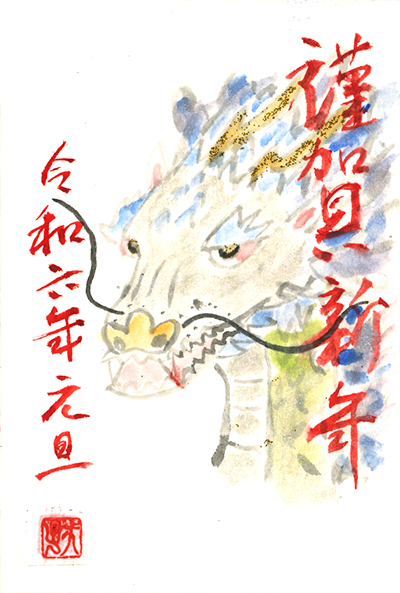 謹賀新年
令和六年 元旦